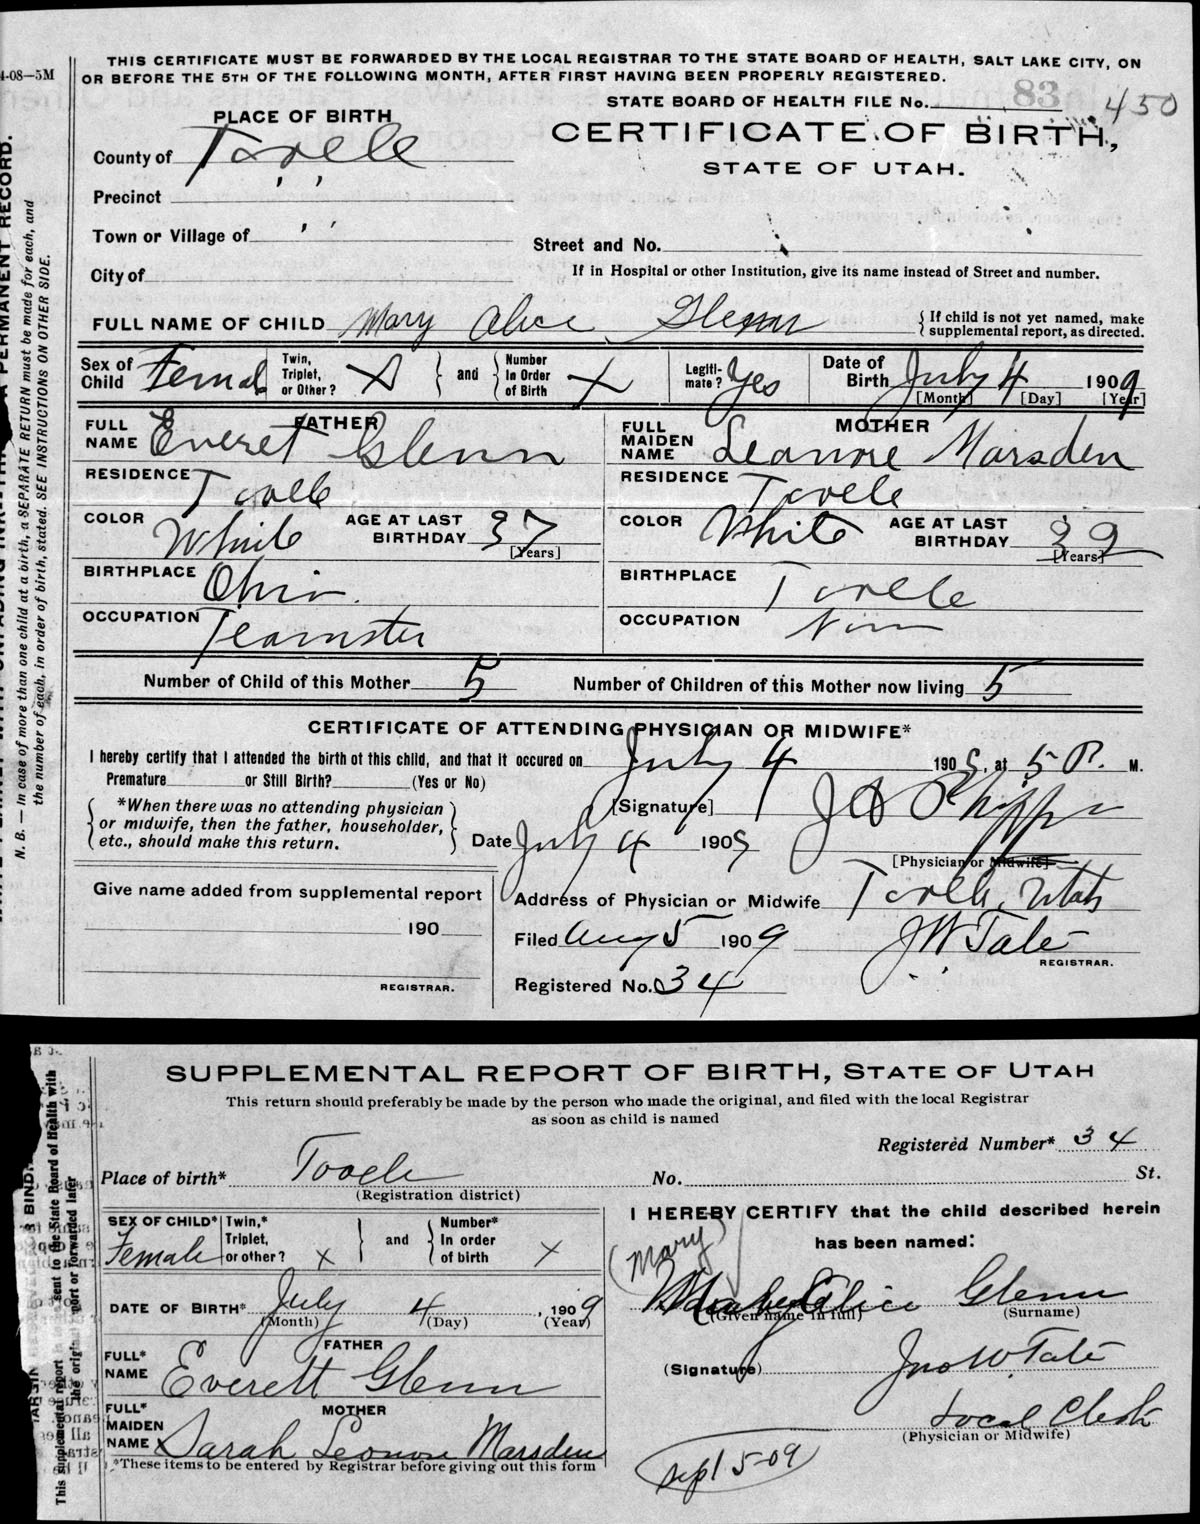 4-08—5M
THIS CERTIFICATE MUST BE FORWARDED BY THE LOCAL REGISTRAR TO THE STATE BOARD OF HEALTH, SALT LAKE CITY, ON
OR BEFORE THE 5TH OF THE FOLLOWING MONTH, AFTER FIRST HAVING BEEN PROPERLY REGISTERED.
STATE BOARD OF HEALTH FILE No. 83 450
PLACE OF BIRTH
CERTIFICATE OF BIRTH,
STATE OF UTAH.
County of Tooele
Precinct " "
Town or Village of " "
Street and No.
City of
If in Hospital or other Institution, give its name instead of Street and number.
FULL NAME OF CHILD Mary Alice Glenn
{ If child is not yet named, make
supplemental report, as directed.
Sex of Child Female
Twin, Triplet, or Other? X } and { Number In Order of Birth X
Legiti- mate? Yes
Date of Birth July 4 1909
[Month] [Day] [Year]
FATHER
FULL NAME Everet Glenn
RESIDENCE Tooele
COLOR White AGE AT LAST BIRTHDAY 37 [Years]
BIRTHPLACE Ohio.
OCCUPATION Teamster
MOTHER
FULL MAIDEN NAME Leanore Marsden
RESIDENCE Tooele
COLOR White AGE AT LAST BIRTHDAY 39 [Years]
BIRTHPLACE Tooele
OCCUPATION
Number of Child of this Mother 5 Number of Children of this Mother now living 5
CERTIFICATE OF ATTENDING PHYSICIAN OR MIDWIFE*
I hereby certify that I attended the birth of this child, and that it occured on July 4 1909, at 5 P. M.
Premature or Still Birth? (Yes or No)
{ *When there was no attending physician
or midwife, then the father, householder,
etc., should make this return. }
[Signature] Phipps
Date July 4 1909
[Physician or Midwife]
Give name added from supplemental report
190
REGISTRAR.
Address of Physician or Midwife Tooele, Utah
Filed Aug 5 1909 J W Tate
REGISTRAR.
Registered No. 34
N. B.— In case of more than one child at a birth, a SEPARATE RETURN must be made for each, and
the number of each, in order of birth, stated. SEE INSTRUCTIONS ON OTHER SIDE.
SUPPLEMENTAL REPORT OF BIRTH, STATE OF UTAH
This return should preferably be made by the person who made the original, and filed with the local Registrar
as soon as child is named
Registered Number* 34
Place of birth* Tooele No. St.
(Registration district)
SEX OF CHILD* Female
Twin,* Triplet, or other? X } and { Number* In order of birth X
DATE OF BIRTH* July 4, 1909
(Month) (Day) (Year)
FATHER
FULL* NAME Everett Glenn
MOTHER
FULL* MAIDEN NAME Sarah Leonore Marsden
*These items to be entered by Registrar before giving out this form
I HEREBY CERTIFY that the child described herein
has been named:
(Mary)
Alice Glenn
(Given name in full) (Surname)
(Signature) Jno W. Tate
Local Clerk
(Physician or Midwife)
Sept 5-09